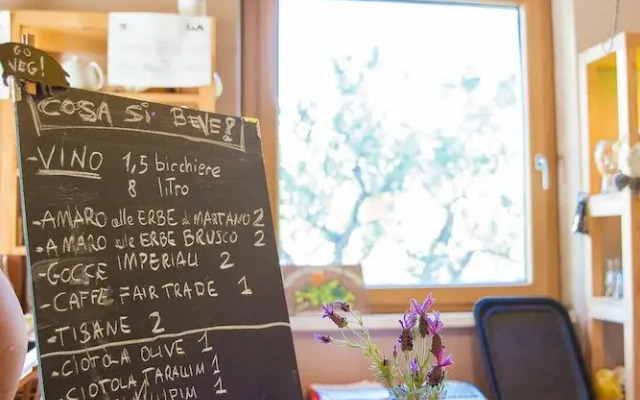 GO
VEG!
COSA SI BEVE?
-VINO 1,5 bicchiere
8 liTRO
-AMARO alle ERBE di MARTANO 2
-AMARO alle ERBE BRUSCO 2
-GOCCE IMPERIALI 2
-CAFFE FAIR TRADE 1
-TISANE 2
-CIOTOLA OLIVE 1
-CIOTOLA TARALLINI 1
1